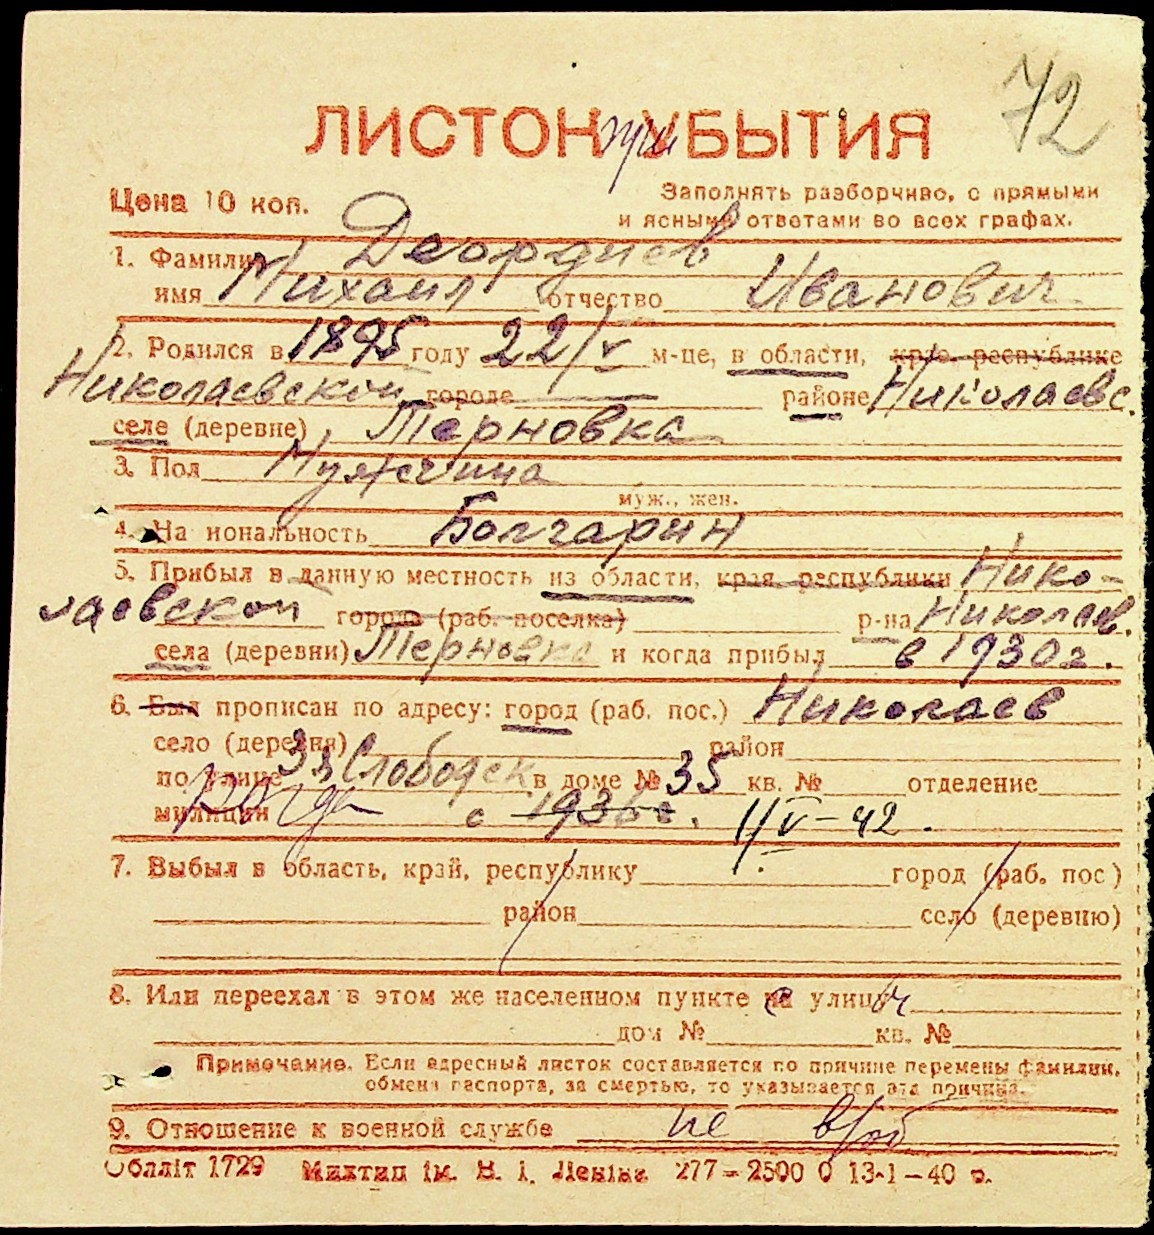 72
ЛИСТОК при УБЫТИЯ
Цена 10 коп.
Заполнять разборчиво, с прямыми
и ясными ответами во всех графах.
1. Фамилия Деордиев
имя Михаил отчество Иванович
2. Родился в 1895 году 22/V м-це, в области, края, республике
Николаевской городе районе Николаевс.
селе (деревне) Терновка
3. Пол Мужчина
муж., жен.
4. На иональность Болгарин
5. Прибыл в данную местность из области, края, республики Нико-
лаевской города (раб. поселка) р-на Николаев.
села (деревни) Терновка и когда прибыл в 1930 г.
6. Был прописан по адресу: город (раб. пос.) Николаев
село (деревня) район
по улице 3я Слободск в доме № 35 кв. № отделение
милиции когда с 1936 г. 11/V-42.
7. Выбыл в область, край, республику город (раб. пос)
район село (деревню)
8. Или переехал в этом же населенном пункте с улицы
дом № кв. №
Примечание. Если адресный листок составляется по причине перемены фамилии,
обмена паспорта, за смертью, то указывается эта причина.
9. Отношение к военной службе не в/об
Облліт 1729 Миктип ім. В. І. Леніна 277—2500 0 13-1—40 р.